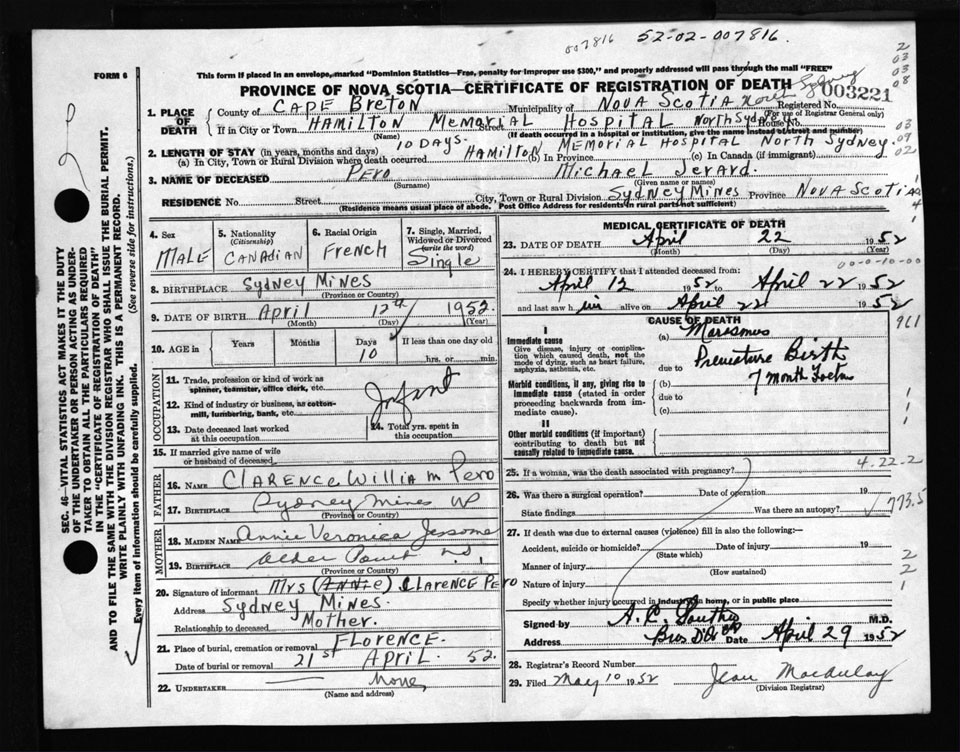 007816 52-02-007816.
FORM 6
This form if placed in an envelope, marked "Dominion Statistics—Free, penalty for improper use $300," and properly addressed will pass through the mail "FREE"
PROVINCE OF NOVA SCOTIA—CERTIFICATE OF REGISTRATION OF DEATH
North Sydney
003221
2
03
03
08
03
09
02
1. PLACE OF DEATH County of CAPE BRETON Municipality of NOVA SCOTIA Registered No.
(For use of Registrar General only)
If in City or Town HAMILTON MEMORIAL Street HOSPITAL NORTH SYDNEY House No.
(Name) (If death occurred in a hospital or institution, give the name instead of street and number)
2. LENGTH OF STAY (in years, months and days) 10 DAYS. HAMILTON MEMORIAL HOSPITAL NORTH SYDNEY.
(a) In City, Town or Rural Division where death occurred (b) In Province (c) In Canada (if immigrant)
3. NAME OF DECEASED PERO MICHAEL JERARD.
(Surname) (Given name or names)
RESIDENCE No. Street City, Town or Rural Division SYDNEY MINES Province NOVA SCOTIA
(Residence means usual place of abode. Post Office Address for residents in rural parts not sufficient)
4. Sex MALE
5. Nationality (Citizenship) CANADIAN
6. Racial Origin FRENCH
7. Single, Married, Widowed or Divorced (write the word) Single
8. BIRTHPLACE SYDNEY MINES
(Province or Country)
9. DATE OF BIRTH April 12th 1952.
(Month) (Day) (Year)
10. AGE in Years Months Days 10 If less than one day old
hrs. or min.
OCCUPATION
11. Trade, profession or kind of work as spinner, teamster, office clerk, etc.
Infant
12. Kind of industry or business, as cotton-mill, lumbering, bank, etc.
13. Date deceased last worked at this occupation
14. Total yrs. spent in this occupation
15. If married give name of wife or husband of deceased
FATHER
16. NAME CLARENCE WILLIAM PERO
17. BIRTHPLACE Sydney Mines
(Province or Country)
MOTHER
18. MAIDEN NAME Annie Veronica Jessome
19. BIRTHPLACE Alder Point N.S.
(Province or Country)
20. Signature of informant Mrs (ANNIE) CLARENCE PERO
Address SYDNEY MINES.
Relationship to deceased MOTHER.
21. Place of burial, cremation or removal FLORENCE.
Date of burial or removal 21st APRIL. 52.
22. UNDERTAKER None,
(Name and address)
MEDICAL CERTIFICATE OF DEATH
23. DATE OF DEATH April 22 1952
(Month) (Day)
00-0-10-00
24. I HEREBY CERTIFY that I attended deceased from:
April 12 1952 to April 22 1952
and last saw him alive on April 22 1952
CAUSE OF DEATH
961
I
Immediate cause
Give disease, injury or complication which caused death, not the mode of dying, such as heart failure, asphyxia, asthenia, etc.
(a) Marasmus
due to Premature Birth
7 Month Foetus
Morbid conditions, if any, giving rise to immediate cause (stated in order proceeding backwards from immediate cause).
(b)
due to
(c)
II
Other morbid conditions (if important) contributing to death but not causally related to immediate cause.
4.22.2
25. If a woman, was the death associated with pregnancy?
26. Was there a surgical operation? Date of operation 19
State findings Was there an autopsy? 773.5
27. If death was due to external causes (violence) fill in also the following:—
Accident, suicide or homicide? Date of injury 19
(State which)
Manner of injury
(How sustained)
Nature of injury
Specify whether injury occurred in industry, in home, or in public place
2
2
1
Signed by M.D.
Address Date April 29 1952
28. Registrar's Record Number
29. Filed May 10 1952 Jean MacAulay
(Division Registrar)
SEC. 46—VITAL STATISTICS ACT MAKES IT THE DUTY OF THE UNDERTAKER OR PERSON ACTING AS UNDERTAKER TO OBTAIN ALL THE PARTICULARS REQUIRED IN THE "CERTIFICATE OF REGISTRATION OF DEATH" AND TO FILE THE SAME WITH THE DIVISION REGISTRAR WHO SHALL ISSUE THE BURIAL PERMIT.
WRITE PLAINLY WITH UNFADING INK. THIS IS A PERMANENT RECORD.
Every item of information should be carefully supplied. (See reverse side for instructions.)